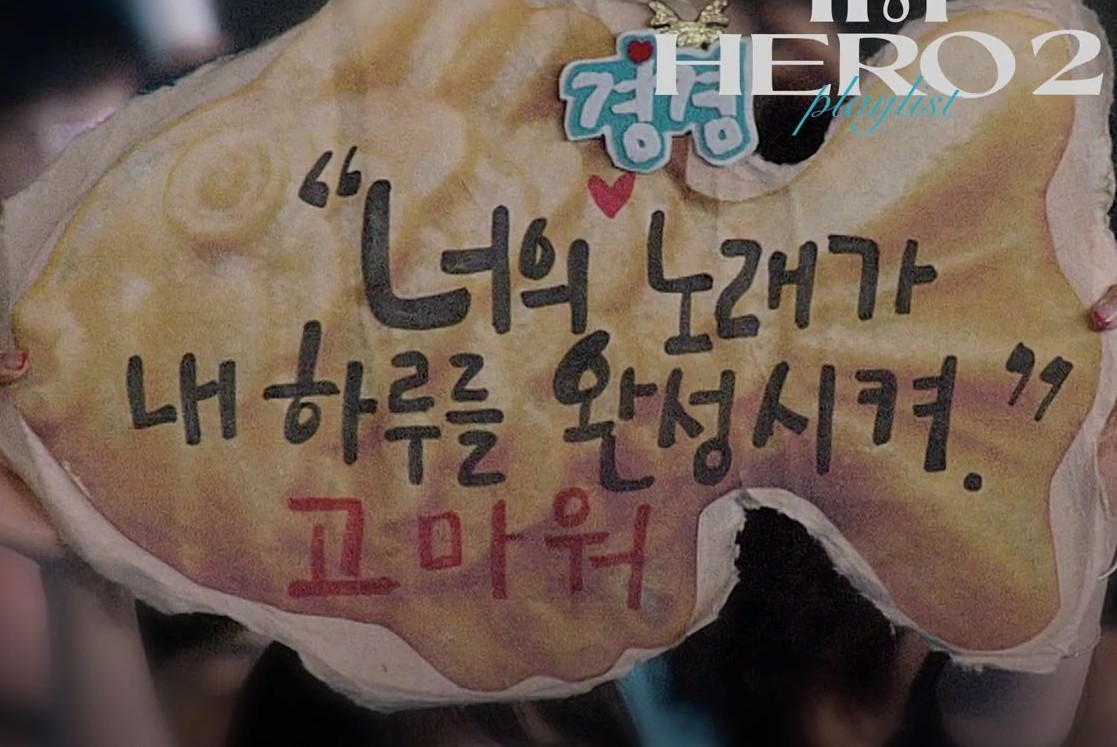 HERO 2
playlist
경경
“너의 노래가
내 하루를 완성시켜.”
고마워